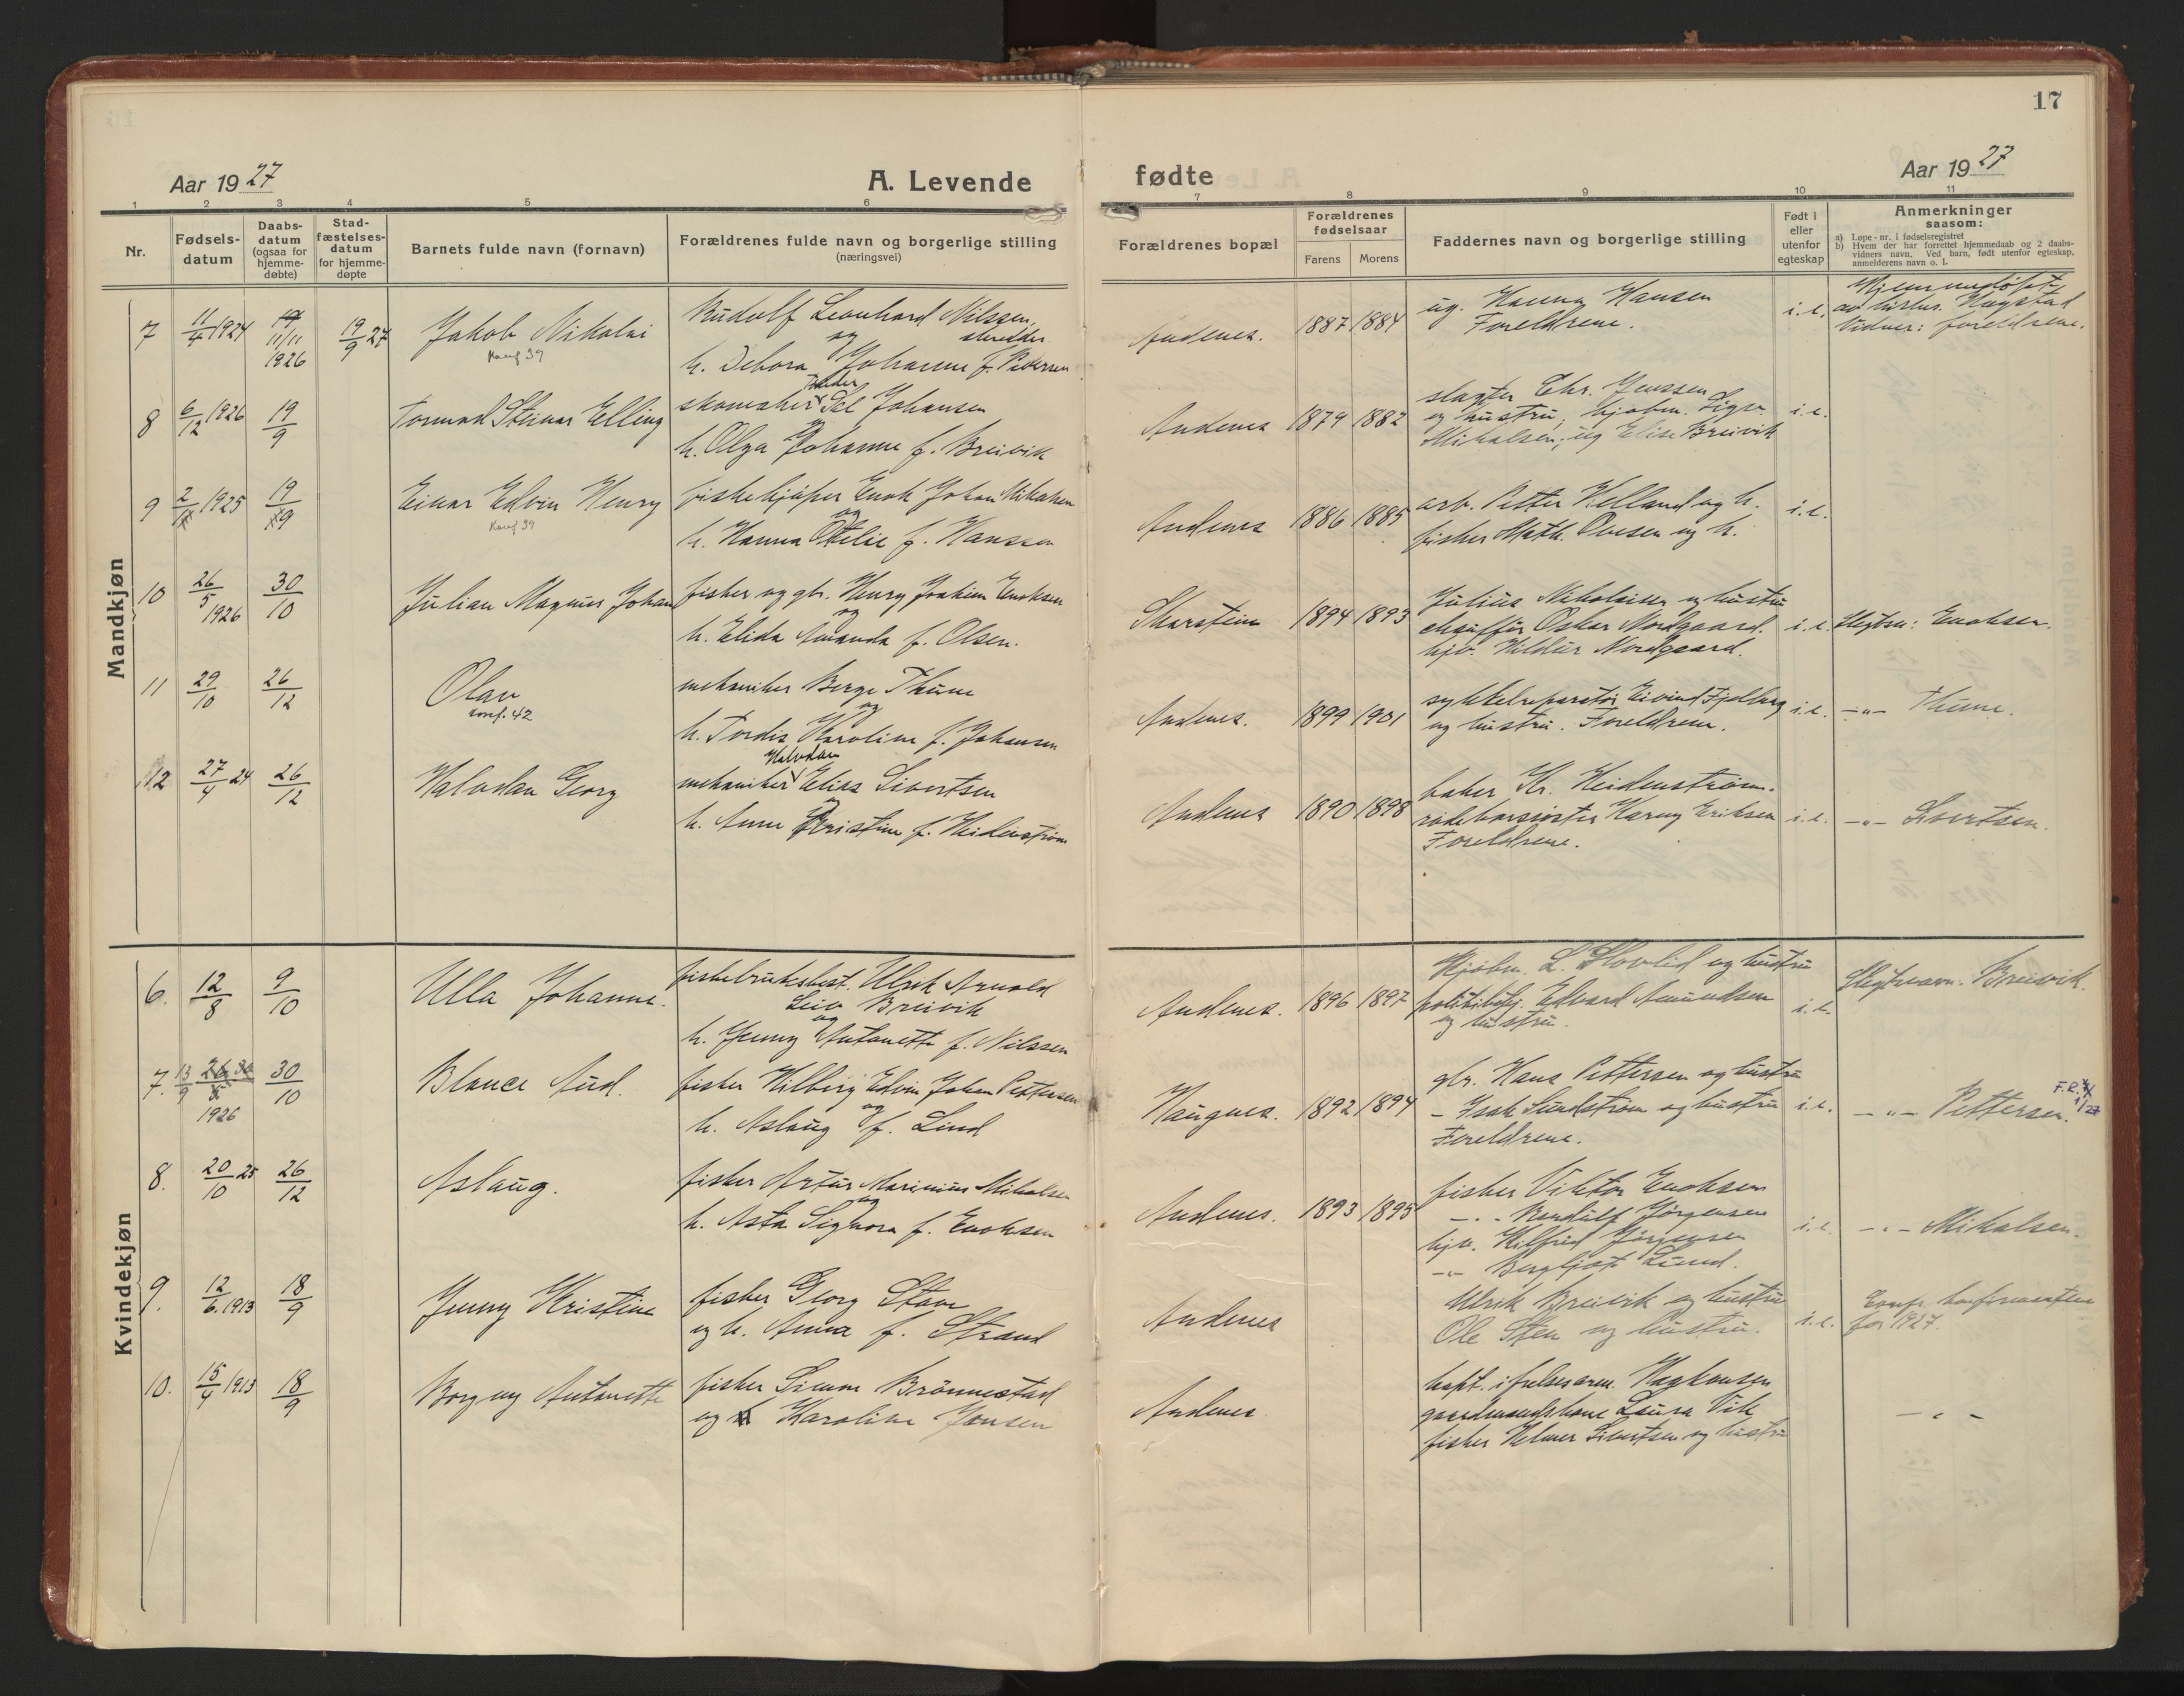 17
Aar 1927
A. Levende
fødte
Aar 1927
1 2 3 4 5 6 7 8 9 10 11
Nr.
Fødsels-
datum
Daabs-
datum
(ogsaa for
hjemme-
døbte)
Stad-
fæstelses-
datum
for hjemme-
døpte
Barnets fulde navn (fornavn)
Forældrenes fulde navn og borgerlige stilling
(næringsvei)
Forældrenes bopæl
Forældrenes
fødselsaar
Farens Morens
Faddernes navn og borgerlige stilling
Født i
eller
utenfor
egteskap
Anmerkninger
saasom:
a) Løpe-nr. i fødselsregistret
b) Hvem der har forrettet hjemmedaab og 2 daabs-
vidners navn. Ved barn, født utenfor egteskap,
anmelderens navn o. l.
Mandkjøn
7 11/4 1924 11/11 1926 19/9 27 Jakob Nikolai
Konf 39
Rudolf Leonhard Nilssen,
og
h. Debora Johanne f. Pedersen
Andenes. 1887 1884
ug. Hanna Hansen
Foreldrene.
i.e.
Hjemmedøpt
av Hagstad
Vidner: foreldrene.
8 6/12 1926 19/9 Tormod Steinar Elling
skomaker Peder Sel Johansen
og
h. Olga Johanne f. Breivik
Andenes 1879 1882
slagter Chr. Jenssen
og hustru, kjøbm. Sigv.
Mikalsen, ug Elise Breivik
i.e.
9 2/11 1925 19/9 Einar Edvin Henry
Konf 39
fiskekjøper Enok Johan Mikalsen
og
h. Hanna Otelie f. Hanssen
Andenes 1886 1885
arb. Petter Helland og h.
fisker Math. Olusen og h.
i.e.
10 26/5 1926 30/10 Julian Magnus Johan
fisker og gbr. Henry Joakim Enoksen
og
h. Elida Amanda f. Olsen.
Skarstein 1894 1893
Julius Nikolaisen og hustru
chauffør Oskar Nordgaard.
hjv. Hildur Nordgaard.
i.e. Slegtsn: Enoksen.
11 29/10 26/12 Olav
konf. 42
mekaniker Berge Thune
og
h. Tordis Karoline f. Johansen
Andenes. 1899 1901
sykkelreparatør Eivind Fjellberg
og hustru. Foreldrene.
i.e. -"- Thune.
12 27/4 24 26/12 Halvdan Georg
Halvdan
mekaniker Elias Sivertsen
og
h. Anne Kristine f. Heidenstrøm
Andenes 1890 1898
baker Kr. Heidenstrøm.
rødekorssøster Karny Eriksen
Foreldrene.
i.e. -"- Sivertsen.
Kvindekjøn
6. 12/8 9/10 Ulla Johanne.
fiskebruksbest. Ulrik Arnold
Leiv Breivik
og
h. Jenny Antonette f. Nilssen
Andenes. 1896 1897
Kjøbm. L. Slovlid og hustru
politibetj. Edvard Amundsen
og hustru.
i.e.
Slegtsnavn: Breivik.
7. 13/9 1926 30/10 Blance Aud.
fisker Hilberg Edvin Johan Pettersen
og
h. Aslaug f. Lind
Haugnes. 1892 1894
gbr. Hans Pettersen og hustru
- Isak Sundstrøm og hustru
Foreldrene.
i.e. -"- Pettersen.
8. 20/10 25 26/12 Aslaug.
fisker Artur Marinius Mikalsen
og
h. Asta Signora f. Enoksen
Andenes. 1893 1895
fisker Viktor Enoksen
-"- Jørgensen
hjv. Hilfrid Jørgensen
-"- Bergljot Lund.
i.e. -"- Mikalsen.
9. 12/6. 1913 18/9 Jenny Kristine
fisker Georg Stave
og h. Anna f. Strand
Andenes
Ulrik Breivik og hustru
Ole Sten og hustru.
i.e.
for 1927.
10. 15/4 1913 18/9 Borgny Antonette
fisker Simon Brønnestad
og Karoline Jensen
Andenes
kapt. i frelsesarm. Haakonsen
gaardmandskone Laura Vik
fisker Helmer Sivertsen og hustru
-"-